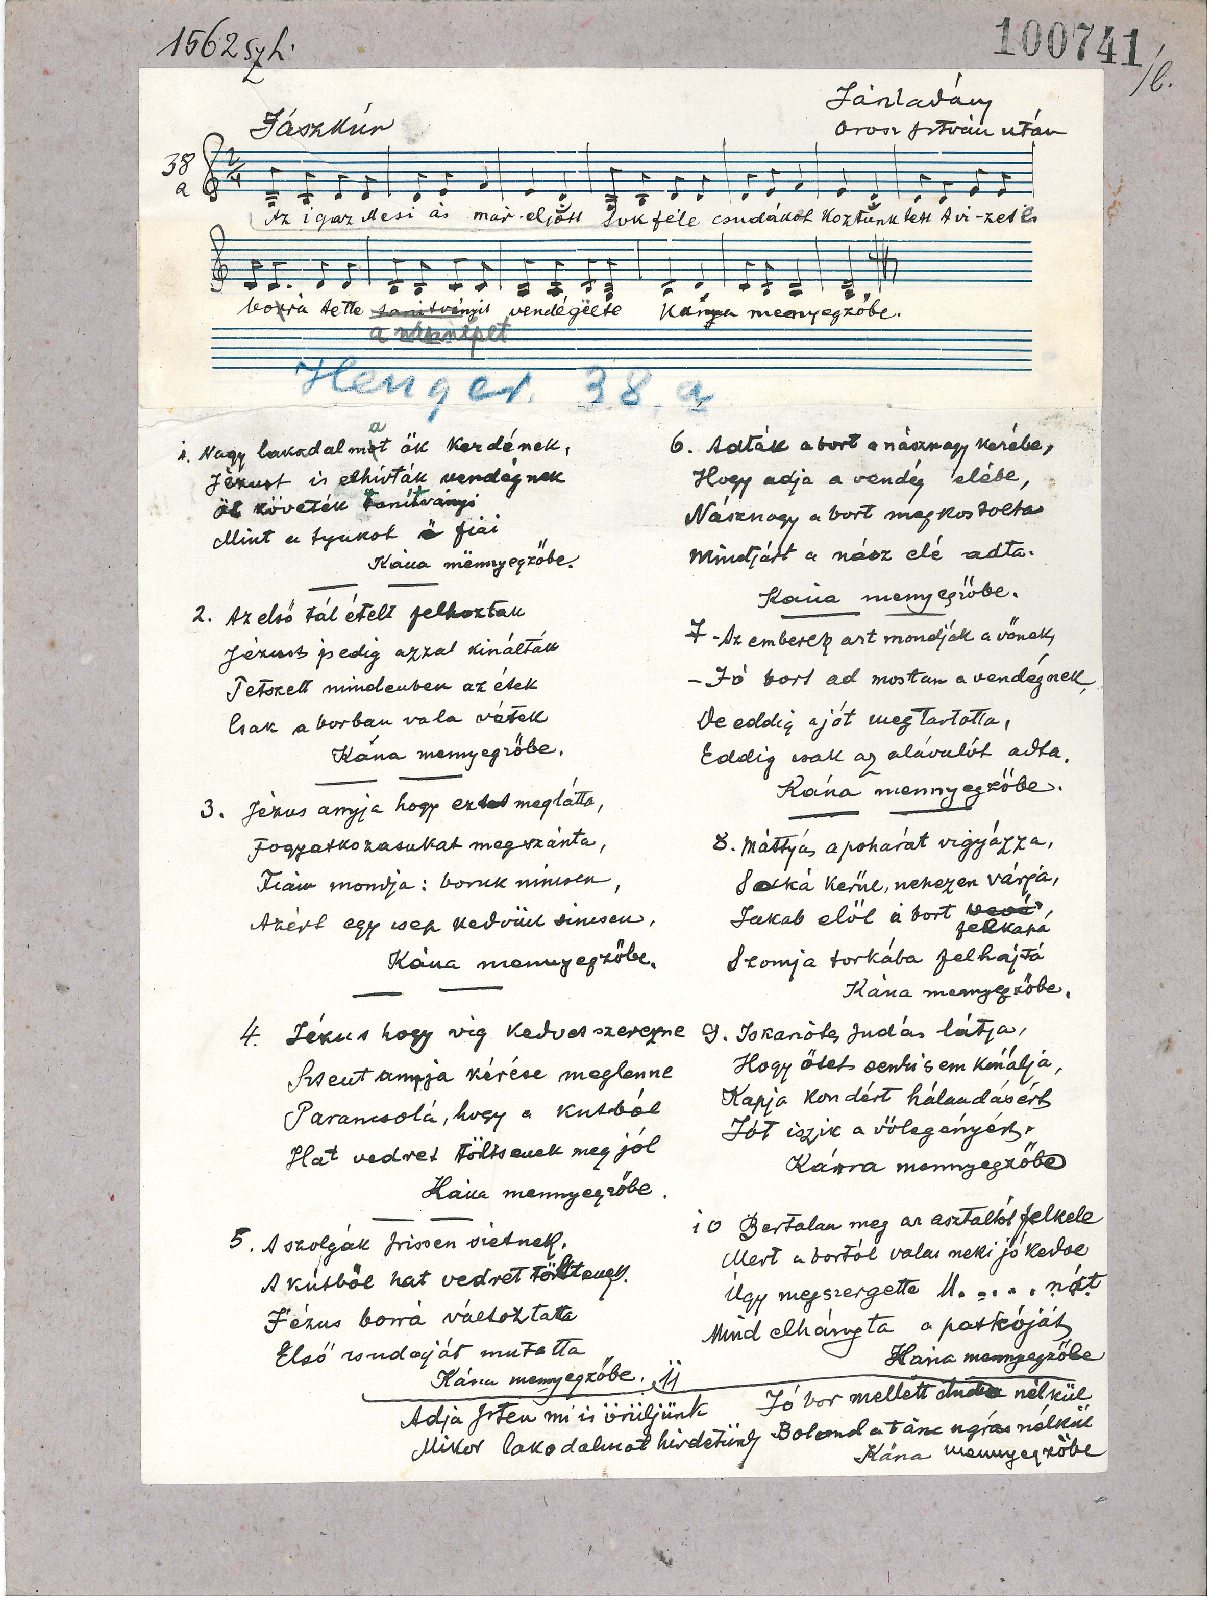 1562 szh.
100741/b.
Jászladány
Jászkún
Orosz István után
38
a
Az igaz Mesi ás már-eljött Sokféle csudákot köztünk tett A vi-zet is
borrá tette tanitványit vendégelte Kánya mennyegzőbe.
a násznépet
Henger. 38. a
1. Nagy lakodalmat ők kezdének,
Jézust is elhívták vendégnek
Őt követék tanítványi
Mint a tyukot ő fiai
Kána mennyegzőbe.
2. Az első tál ételt felhoztak
Jézust pedig azzal kinálták
Tetszett mindenben az étek
Csak a borban vala vétek
Kána mennyegzőbe.
3. Jézus anyja hogy eztet meglátta,
Fogyatkozásukat megszánta,
Fiám mondja: boruk nincsen,
Azért egy csep kedvük sincsen,
Kána mennyegzőbe.
4. Jézus hogy víg kedvet szerezne
Szent anyja kérése meglenne
Parancsolá, hogy a kutból
Hat vedret töltsenek meg jól
Kána mennyegzőbe.
5. A szolgák frissen sietnek.
A kútból hat vedret töltenek.
Jézus borrá változtatta
Első csudáját mutatta
Kána mennyegzőbe.
6. Adták a bort a násznagy kezébe,
Hogy adja a vendég elébe,
Násznagy a bort megkostolta
Mindjárt a nász elé adta.
Kána mennyegzőbe.
7 - Az emberek azt mondják a vőnek,
- Jó bort ad mostan a vendégnek,
De eddig a jót megtartotta,
Eddig csak az alávalót adta.
Kána mennyegzőbe.
8. Máttyás a poharát vigyázza,
Soká kerül, nehezen várja,
Jakab elől a bort vevé
felkapá
Szomja torkába felhajtá
Kána mennyegzőbe.
9. Iskariótes Judás látja,
Hogy őtet senki sem kínálja,
Kapja kondért hálaadásért
Jót iszik a vőlegényért.
Kánra mennyegzőbe
10 Bertalan meg az asztaltól felkele
Mert a bortól vala neki jó kedve
Úgy megszergette M.....nát
Mind elhányta a patkóját
Kána mennyegzőbe
11
Adja Isten mi is örüljünk
Mikor lakodalmat hirdetünk
Jó bor mellett duda nélkül
Bolond a tánc ugrás nélkül
Kána mennyegzőbe